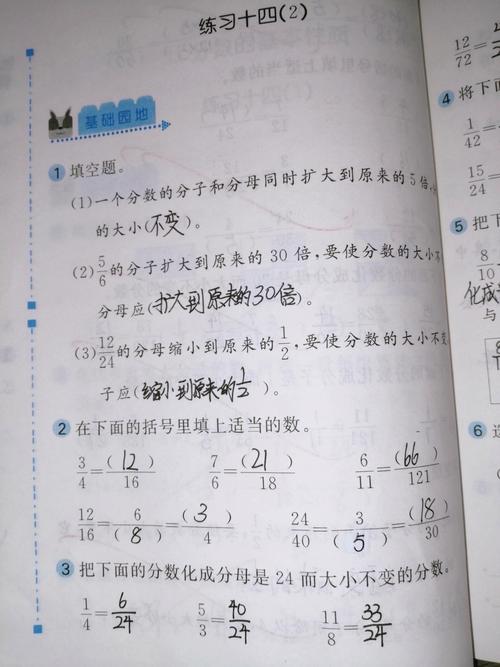 练习十四(2)
基础园地
1 填空题。
(1)一个分数的分子和分母同时扩大到原来的5倍,
的大小(不变)。
(2)5/6的分子扩大到原来的30倍,要使分数的大小不
分母应(扩大到原来的30倍)。
(3)12/24的分母缩小到原来的1/2,要使分数的大小不变
子应(缩小到原来的1/2)。
2 在下面的括号里填上适当的数。
3/4=(12)/16 7/6=(21)/18 6/11=(66)/121
12/16=6/(8)=(3)/4 24/40=3/(5)=(18)/30
3 把下面的分数化成分母是24而大小不变的分数。
1/4=6/24 5/3=40/24 11/8=33/24
12/72=
4 将下面
1/42=
15/24=
5 把下
8/10
化成
与
6